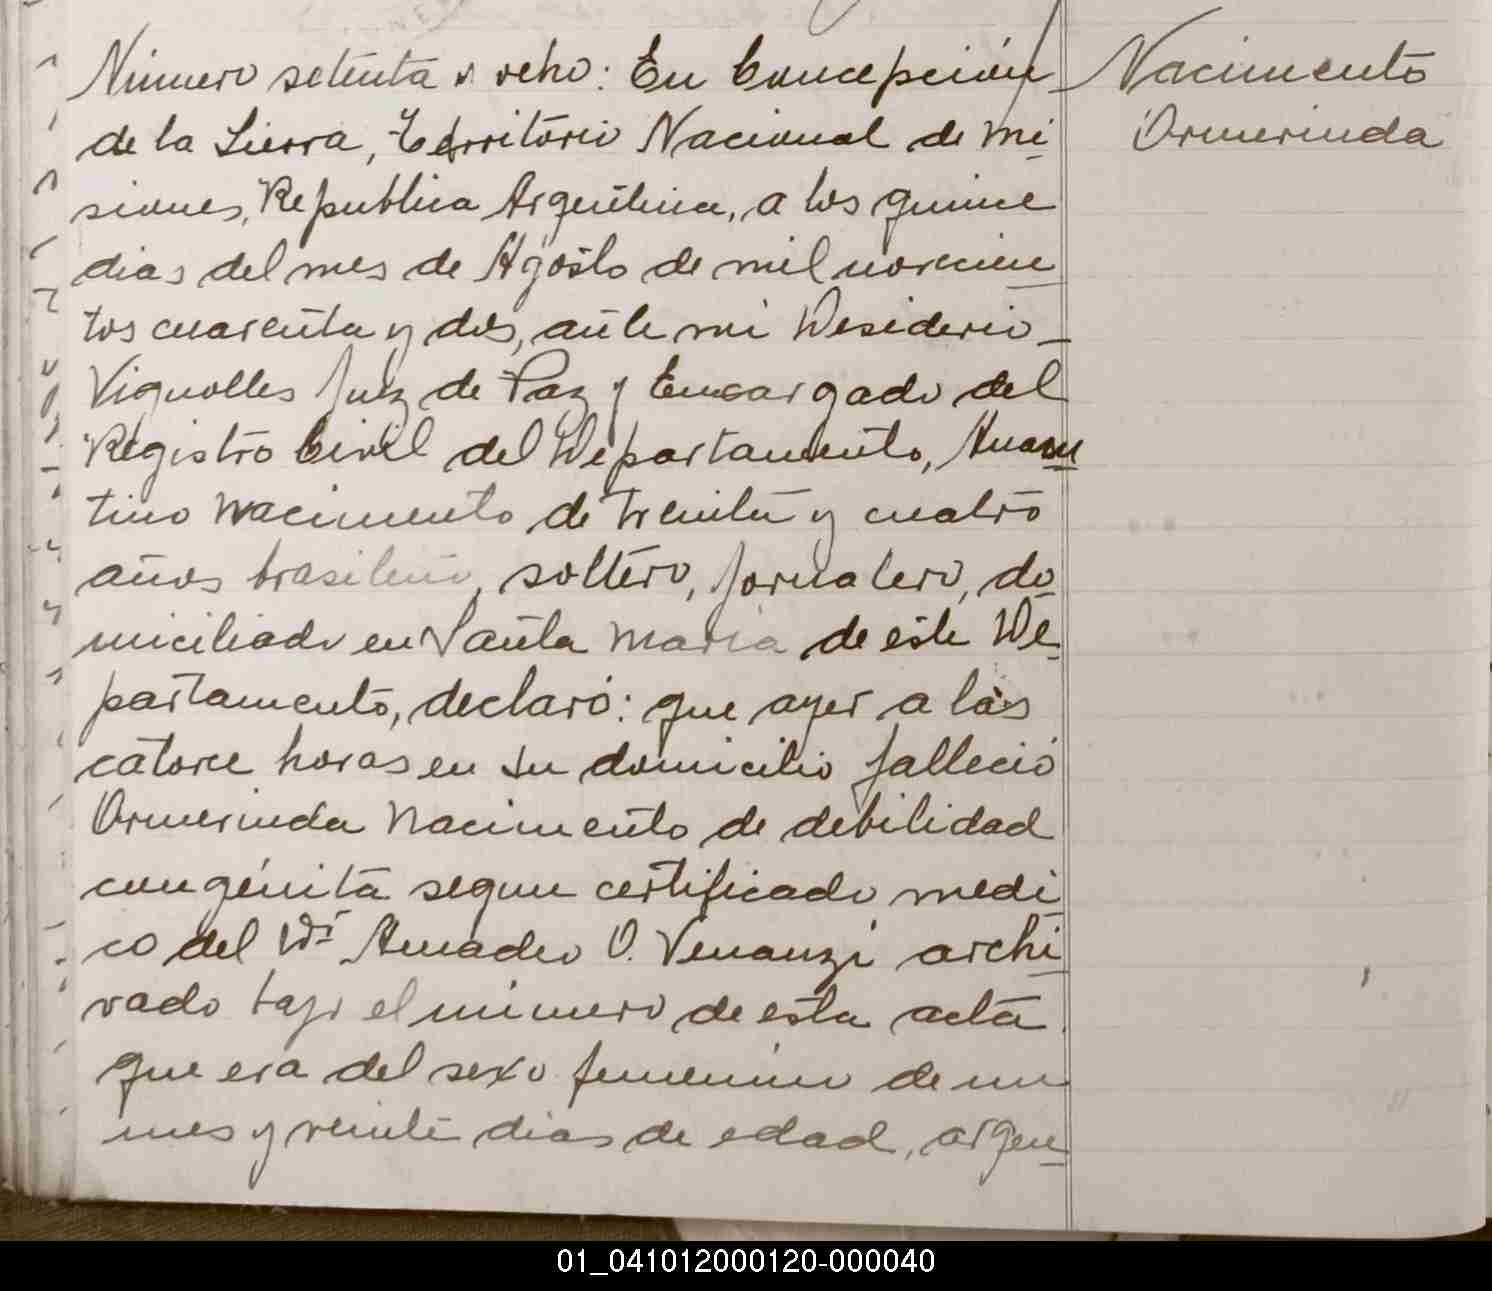 Número setenta y ocho: En Concepción
de la Sierra, Territorio Nacional de Mi
siones, Republica Argentina, a los quince
dias del mes de Agosto de mil novecien
tos cuarenta y dos, ante mi Desiderio
Vignolles Juez de Paz y Encargado del
Registro Civil del Departamento,
tino Nacimento de treinta y cuatro
años brasileño, soltero, jornalero, do
miciliado en Santa Maria de este De
partamento, declaró: que ayer a las
catorce horas en su domicilio falleció
Ormerinda Nacimento de debilidad
congénita segun certificado medi
co del Dr Amadeo O. Venanzi archi
vado bajo el número de esta acta
que era del sexo femenino de un
mes y veinte dias de edad, argen
Nacimento
Ormerinda
01_041012000120-000040